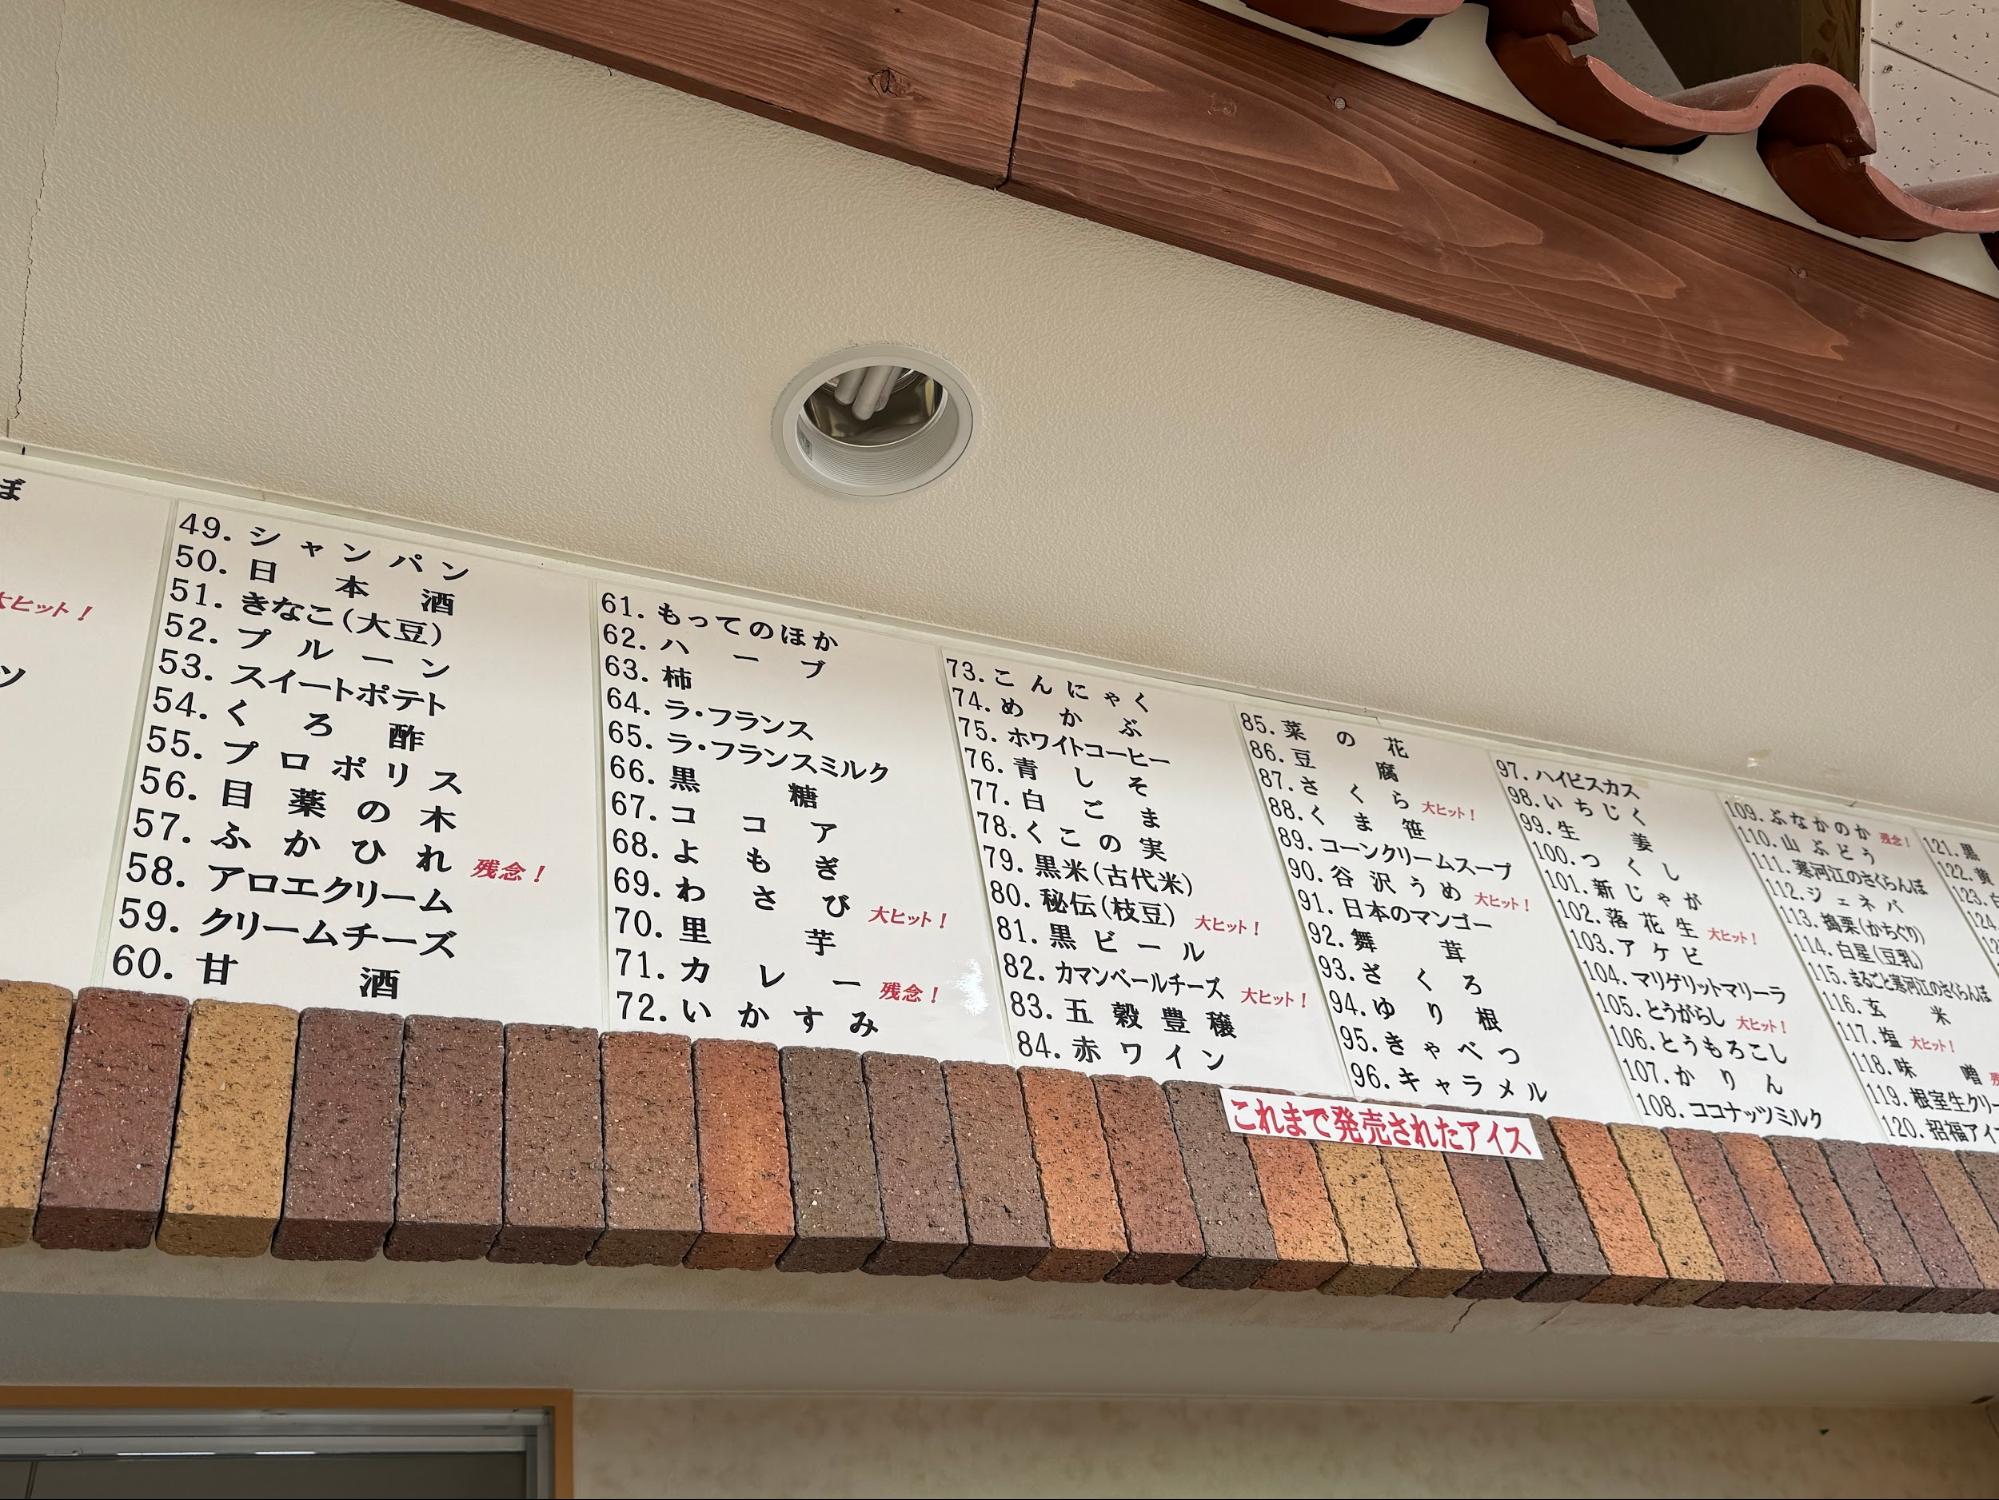 ぼ
大ヒット！
ツ
49. シャンパン
50. 日本酒
51. きなこ(大豆)
52. プルーン
53. スイートポテト
54. くろ酢
55. プロポリス
56. 目薬の木
57. ふかひれ 残念！
58. アロエクリーム
59. クリームチーズ
60. 甘酒
61. もってのほか
62. ハーブ
63. 柿
64. ラ・フランス
65. ラ・フランスミルク
66. 黒糖
67. ココア
68. よもぎ
69. わさび 大ヒット！
70. 里芋
71. カレー 残念！
72. いかすみ
73. こんにゃく
74. めかぶ
75. ホワイトコーヒー
76. 青しそ
77. 白ごま
78. くこの実
79. 黒米(古代米)
80. 秘伝(枝豆) 大ヒット！
81. 黒ビール
82. カマンベールチーズ 大ヒット！
83. 五穀豊穣
84. 赤ワイン
85. 菜の花
86. 豆腐
87. さくら 大ヒット！
88. くま笹
89. コーンクリームスープ
90. 谷沢うめ 大ヒット！
91. 日本のマンゴー
92. 舞茸
93. ざくろ
94. ゆり根
95. きゃべつ
96. キャラメル
97. ハイビスカス
98. いちじく
99. 生姜
100. つくし
101. 新じゃが
102. 落花生 大ヒット！
103. アケビ
104. マリゲリットマリーラ
105. とうがらし 大ヒット！
106. とうもろこし
107. かりん
108. ココナッツミルク
109. ぶなかのか 残念！
110. 山ぶどう
111. 寒河江のさくらんぼ
112. ジェネバ
113. 搗栗(かちぐり)
114. 白星(豆乳)
115. まるごと寒河江のさくらんぼ
116. 玄米
117. 塩 大ヒット！
118. 味噌 残
119. 根室生クリー
120. 招福アイ
121. 黒
122. 黄
123.
124.
これまで発売されたアイス